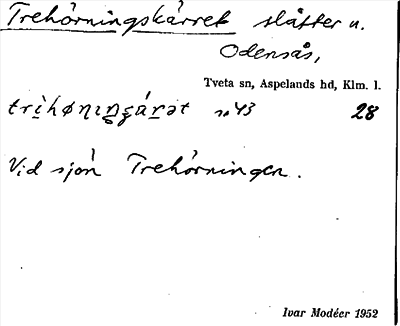 Trehörningskärret slåtter u.
Odensås,
Tveta sn, Aspelands hd, Klm. l.
28
Vid sjön Trehörningen.
Ivar Modéer 1952